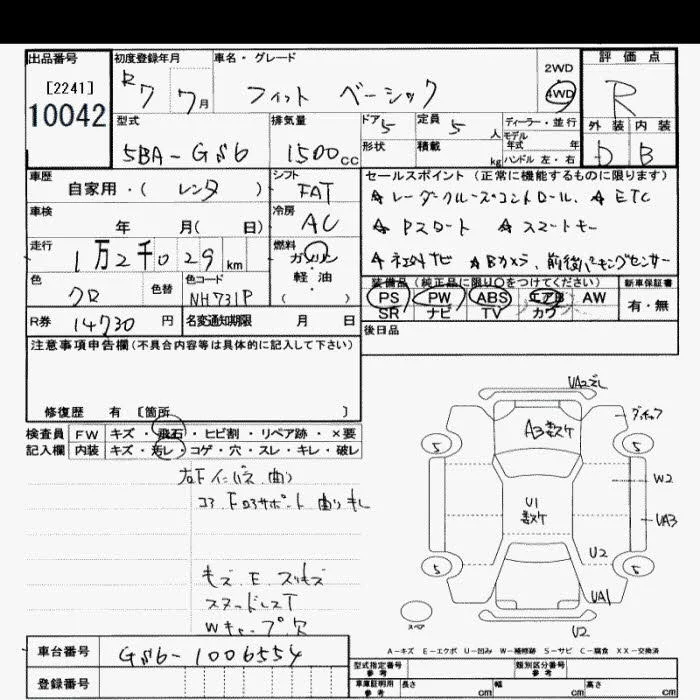 出品番号 初度登録年月 車名・グレード 評価点
[2241] R7 7月 フィット ベーシック 2WD 4WD R
10042 外装 内装
型式 排気量 ドア 5 定員 5人 ディーラー・並行 D B
5BA-GS6 1500cc 形状 積載 kg モデル年式 年
ハンドル 左・右
車歴 シフト セールスポイント (正常に機能するものに限ります)
自家用・( レンタ ) FAT ☆レーダークルーズコントロール、☆ETC
車検 冷房 ☆Pスタート ☆スマートキー
年 月( 日) AC
走行 燃料 ☆社外ナビ ☆Bカメラ、前後パーキングセンサー
1万2千029km ガソリン
色 色替 色コード 軽油 装備品 (純正品に限り○をつけてください) 新車保証書
クロ NH731P ・( ) PS PW ABS エアB AW 有・無
R券 14730円 名変通知期限 月 日 SR ナビ TV カワ
注意事項申告欄(不具合内容等は具体的に記入して下さい) 後日品
修復歴 有 [箇所 ]
検査員 FW キズ・飛石・ヒビ割・リペア跡・×要
記入欄 内装 キズ・汚レ・コゲ・穴・スレ・キレ・破レ
右Fインパネ 曲り
コアF ロアサポート 曲りキレ
キズ.E.スリキズ
スタッドレスT
Wキャップ欠
UA2ズレ
A3 数ヶ
5
5
W2
U1
数ヶ
UA3
U2
5
5
UA1
スペア
U2
A-キズ E-エクボ U-凹み W-補修跡 S-サビ C-腐食 XX-交換済
車台番号 GS6-1006554
登録番号
型式指定番号 参考 類別区分番号 参考
車庫証明用 参考 長さ cm 幅 cm 高さ cm